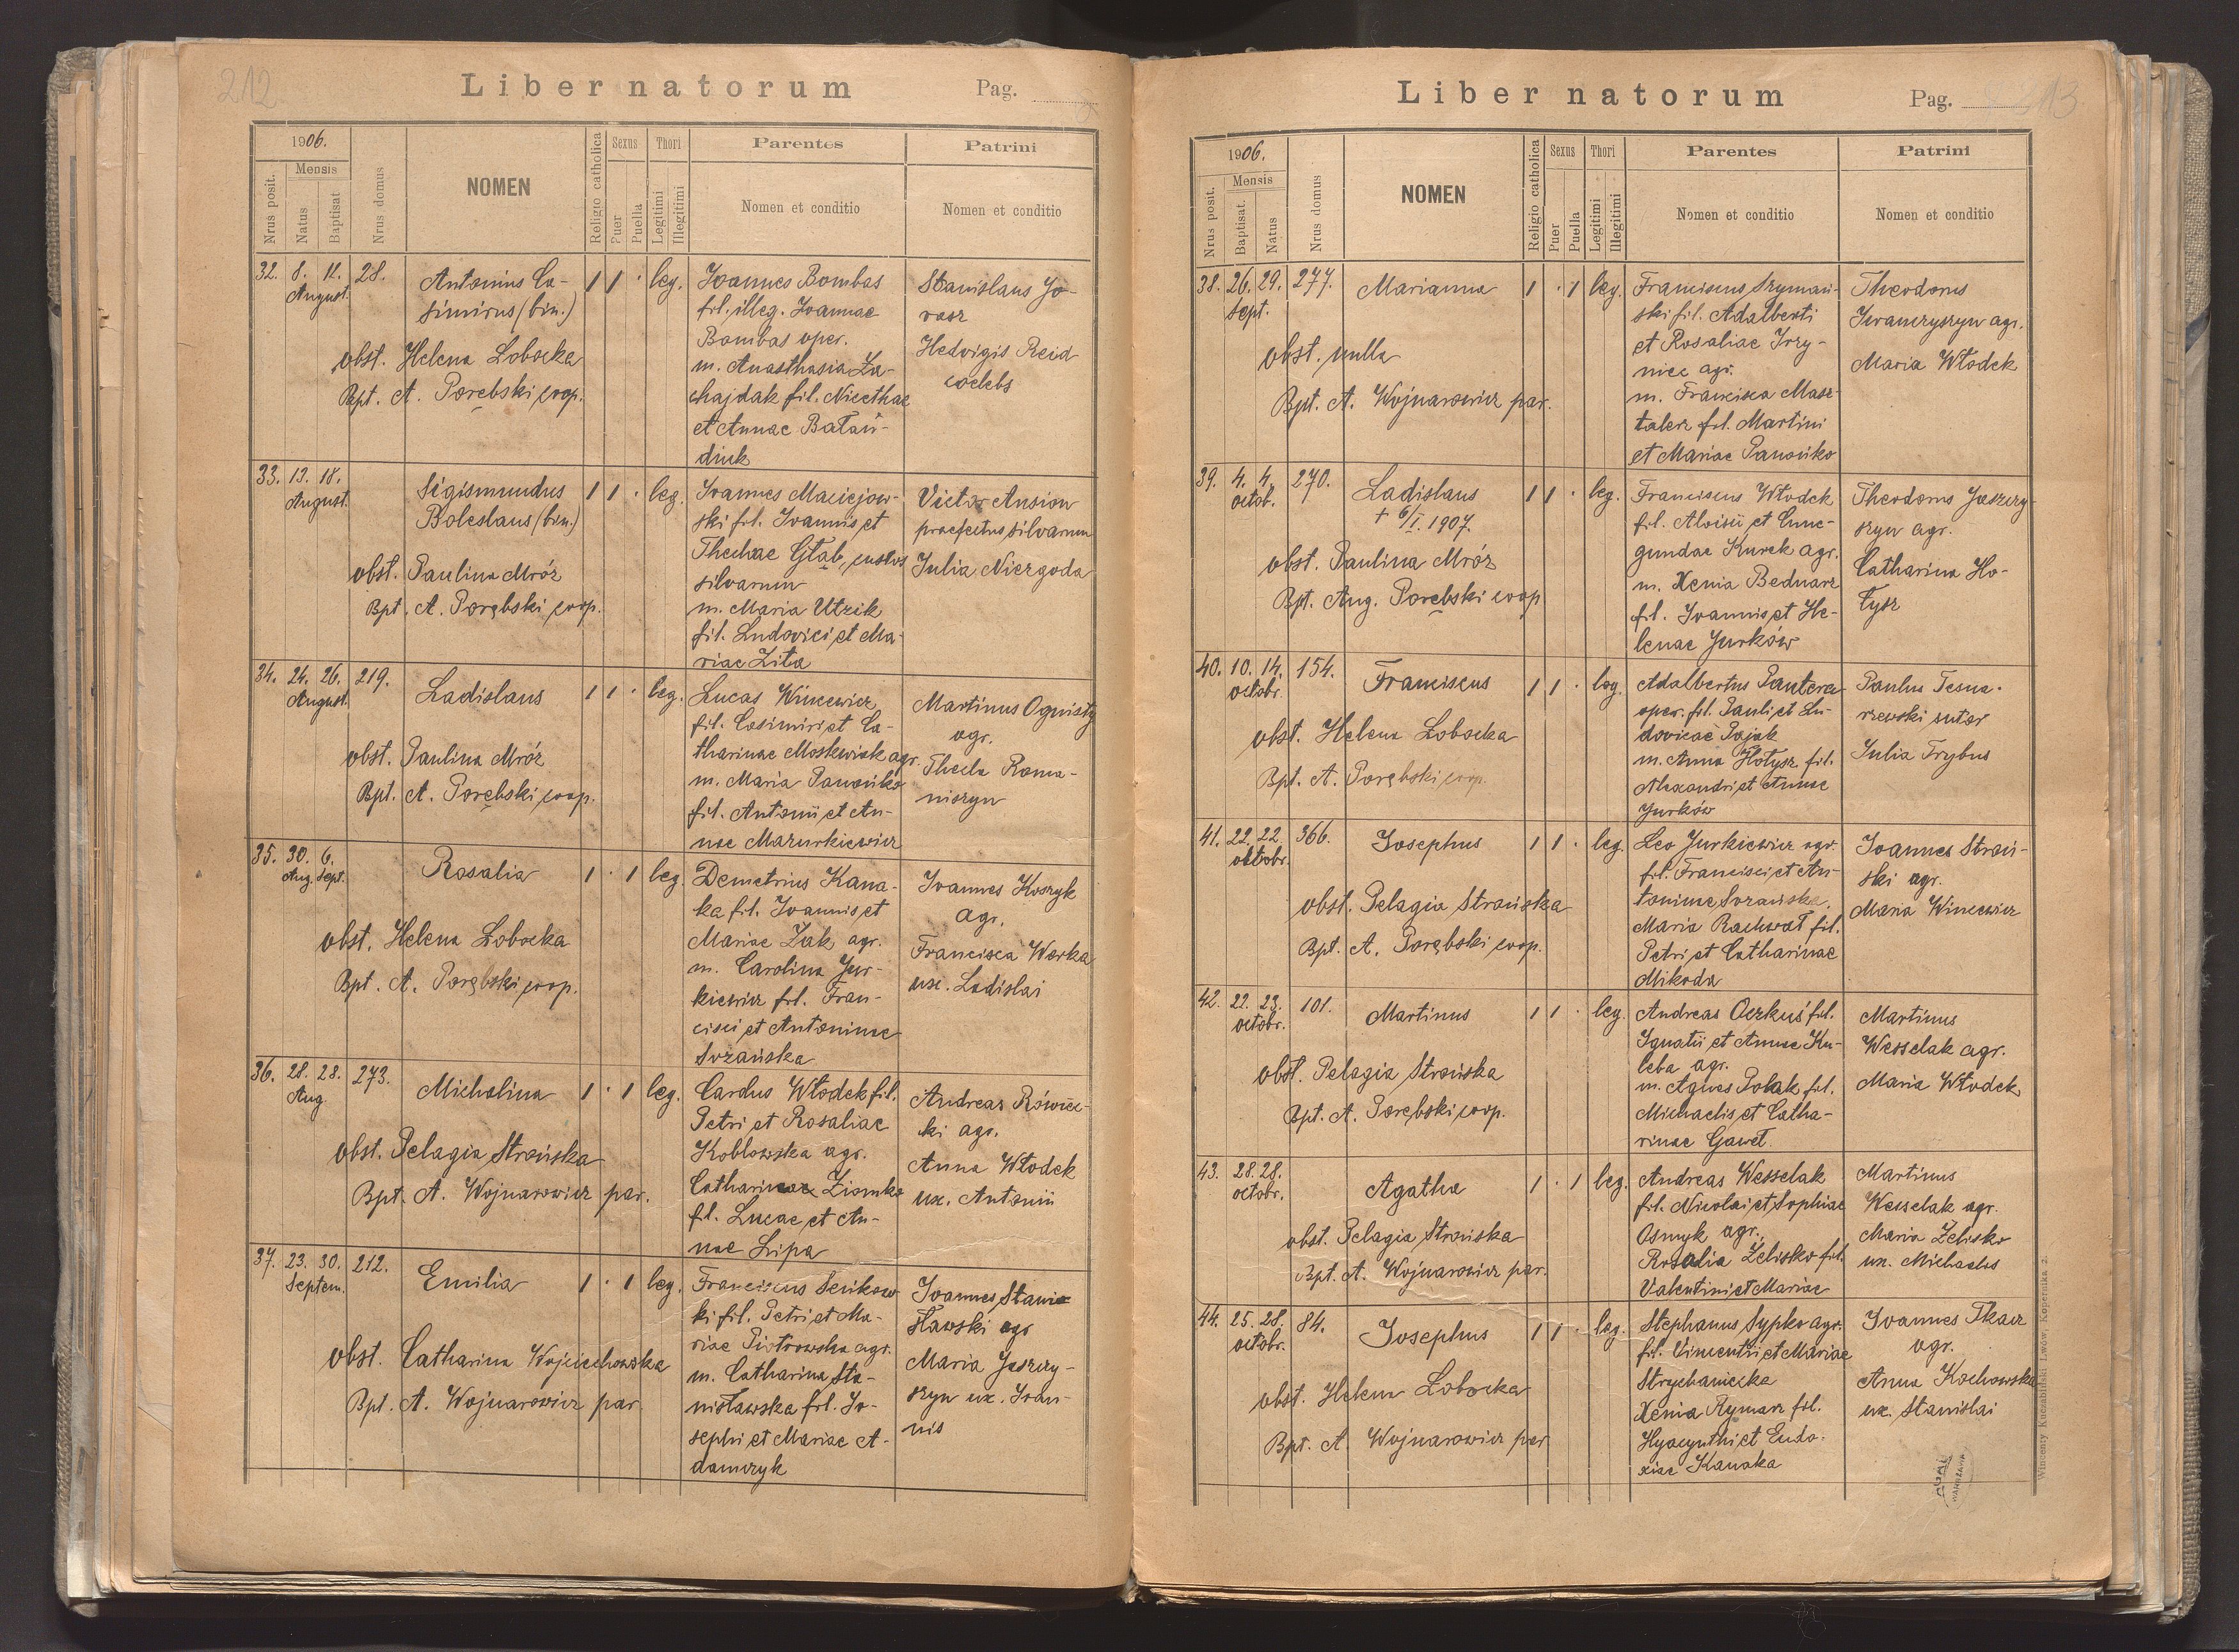 212
Liber natorum
Pag.
1906.
Nrus posit.
Mensis
Natus
Baptisat
Nrus domus
NOMEN
Religio catholica
Sexus
Puer
Puella
Thori
Legitimi
Illegitimi
Parentes
Nomen et conditio
Patrini
Nomen et conditio
32. 8. 12. 28.
August.
Antonius Ca-
simirus (bin.)
obst. Helena Lobocka
Bpt. A. Porębski coop.
1 1 · leg.
Joannes Bombas
fil. illeg. Joannae
Bombas oper.
m. Anasthasia Za-
chajdak fil. Nicethae
et Annae Batań-
diuk
Stanislaus
Hedvigis Reid
coelebs
33. 13. 18.
August.
Sigismundus
Boleslaus (bin.)
obst. Paulina Mróz
Bpt. A. Porębski coop.
1 1 · leg.
Joannes Maciejow-
ski fil. Joannis et
Theclae Głąb, custos
silvarum
m. Maria Utzik
fil. Ludovici et Ma-
riae Zita
Victor Ansion
praefectus silvarum
Julia Niezgoda
34. 24. 26. 219.
August.
Ladislaus
obst. Paulina Mróz
Bpt. A. Porębski coop.
1 1 · leg.
Lucas Wincewicz
fil. Casimiri et Ca-
tharinae Moskwiak agr.
m. Maria Panońko
fil. Antonii et An-
nae Mazurkiewicz
Martinus Ognisty
agr.
Thecla Roma-
niszyn
35. 30. 6.
Aug. Sept.
Rosalia
obst. Helena Lobocka
Bpt. A. Porębski coop.
1 · 1 leg.
Demetrius Kana-
ka fil. Joannis et
Mariae Żak agr.
m. Carolina Jur-
kiewicz fil. Fran-
cisci et Antoninae
Sozańska
Joannes Koszyk
agr.
Francisca Worka
ux. Ladislai
36. 28. 28. 273.
Aug.
Michalina
obst. Pelagia Strońska
Bpt. A. Wojnarowicz par.
1 · 1 leg.
Carolus Włodek fil.
Petri et Rosaliae
Koblowska agr.
Catharinae Ziomko
fil. Lucae et An-
nae Lipa
Andreas Rówiec-
ki agr.
Anna Włodek
ux. Antonii
37. 23. 30. 212.
Septem.
Emilia
obst. Catharina Wojciechowska
Bpt. A. Wojnarowicz par.
1 · 1 leg.
Franciscus Seńkow
ki fil. Petri et Ma-
riae Piotrowska agr.
m. Catharina Sta-
nisławska fil. Jo-
sephi et Mariae A-
damczyk
Joannes Stani
sławski agr
Maria Jaszczy-
szyn ux. Joan-
nis
Liber natorum
Pag. 13
1906.
Nrus posit.
Mensis
Baptisat.
Natus
Nrus domus
NOMEN
Religio catholica
Sexus
Puer
Puella
Thori
Legitimi
Illegitimi
Parentes
Nomen et conditio
Patrini
Nomen et conditio
38. 26. 29. 277.
Sept.
Marianna
obst. nulla
Bpt. A. Wojnarowicz par.
1 · 1 leg.
Franciscus Szymań-
ski fil. Adalberti
et Rosaliae
agr.
m. Francisca Masz-
talerz fil. Martini
et Mariae Panońko
Theodorus
Iwanczyszyn agr.
Maria Włodek
39. 4. 4. 270.
octob.
Ladislaus
+ 6/I. 1907.
obst. Paulina Mróz
Bpt. Aug. Porębski coop
1 1 · leg.
Franciscus Włodek
fil. Aloisii et Cune-
gundae Kurek agr.
m. Xenia Bednarz
fil. Joannis et He-
lenae Jurków
Theodorus Jaszczy-
szyn agr.
Catharina Ho-
łysz
40. 10. 14. 154.
octobr.
Franciscus
obst. Helena Lobocka
Bpt. A. Porębski coop.
1 1 · leg.
Adalbertus Pantera
oper. fil. Pauli et Lu-
dovicae Pająk
m. Anna Hołysz fil.
Alexandri et Annae
Jurków
Paulus Tesna-
rzewski sutor
Julia Trybus
41. 22. 22. 366.
octobr.
Josephus
obst. Pelagia Strońska
Bpt. A. Porębski coop.
1 1 · leg.
Leo Jurkiewicz agr.
fil. Francisci et An-
toninae Sozańska.
Maria Rachwał fil.
Petri et Catharinae
Mikoda
Joannes Stroń-
ski agr.
Maria Wincewicz
42. 22. 23. 101.
octobr.
Martinus
obst. Pelagia Strońska
Bpt. A. Porębski coop.
1 1 · leg.
Andreas Oczkuś fil.
Ignatii et Annae Ku-
leba agr.
m. Agnes Polak fil.
Michaelis et Catha-
rinae Gaweł.
Martinus
Wesselak agr.
Maria Włodek
43. 28. 28.
octobr.
Agatha
obst. Pelagia Strońska
Bpt. A. Wojnarowicz par.
1 · 1 leg.
Andreas Wesselak
fil. Nicolai et Sophiae
Osmyk agr.
Rosalia Żelisko fil.
Valentini et Mariae
Martinus
Wesselak agr.
Maria Żelisko
ux. Michaelis
44. 25. 28. 84.
octobr.
Josephus
obst. Helena Lobocka
Bpt. A. Wojnarowicz par
1 1 · leg.
Stephanus Sypko agr.
fil. Vincentii et Mariae
Strychanicka
Xenia Rymarz fil.
Hyacynthi et Eudo-
xiae Kanaka
Joannes Tkacz
agr.
Anna Kochowska
ux. Stanislai
Wincenty Kuczabiński Lwów, Kopernika 2.
WARSZAWA